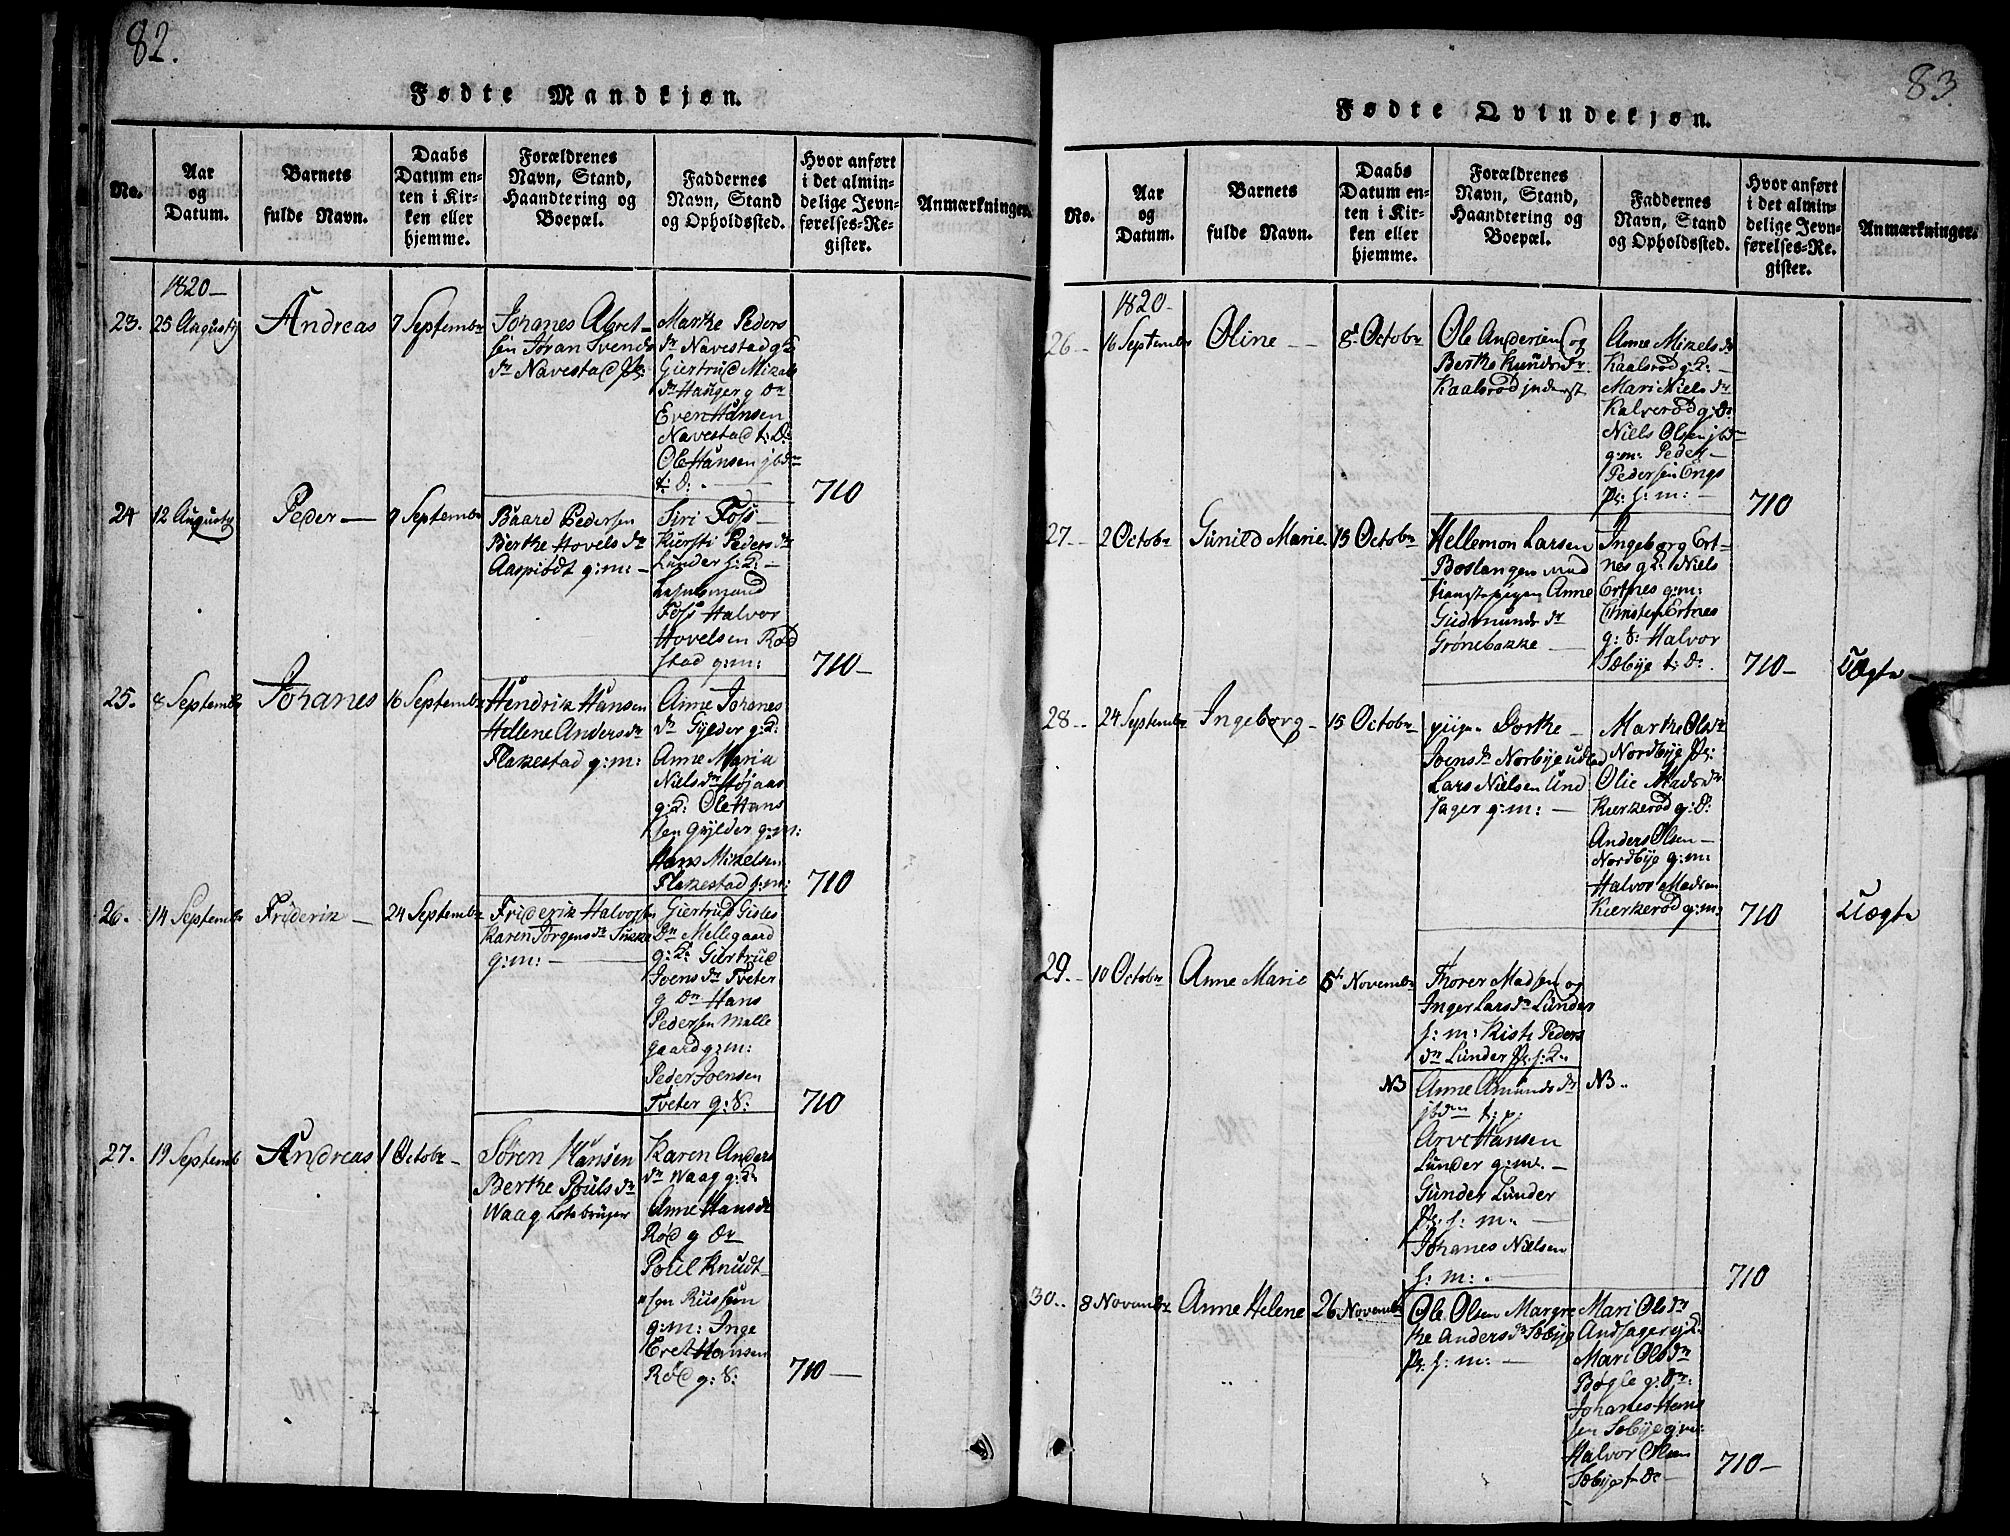 82.
Fødte Mandkjøn.
No.
Aar
og
Datum.
Barnets
fulde Navn.
Daabs
Datum en-
ten i Kir-
ken eller
hjemme.
Forældrenes
Navn, Stand,
Haandtering og
Boepæl.
Faddernes
Navn, Stand
og Opholdssted.
Hvor anført
i det almin-
delige Jevn-
førelses-Re-
gister.
Anmærkninger.
1820 –
23.
25 Augusty
Andreas
7 Septembr
Johanes Abret-
sen Jøran Svends
dr Navestad
Marthe Peders
dr Navestad
Giertrud Mikels
dr Hauger g Dr
Even Hansen
Navestad t: D:
Ole Hansen jbdm
t: d: . —
710
24
12 Augusty
Peder —
9 Septembr
Baard Pedersen
Berthe Hovels dr
Aaspiødt g:m: –
Siri Foss –
Kiersti Peders dr
Lunder
Foss Halvor
Hovelsen Rød
stad g:m:
710 –
25.
8 Septembr
Johanes
16 Septembr
Hendrik Hansen
Hellene Anders dr
Flakestad g:m:
Anne Johanes
dr Gylder g:
Anne Maria
Niels dr Højaas
g: Ole Hans
sen Gylder g:m:
Hans Mikelsen
Flakestad g:m:
710
26.
14 Septembr
Friderik –
24 Septembr
Friderik Halvorsen
Karen Jørgens dr
g:m: —
Giertrud Gisles
Dr Mellegaard
g: Giertrud
Joens dr Tveter
g Dr Hans
Pedersen Melle
gaard g:m:
Peder Joensen
Tveter g: d:
710
27.
19 Septemb
Andreas
1 Octobr –
Søren Hansen
Berthe Pouls dr
Waag
Karen Anders
dr Waag g:
Anne Hans dr
Rød g Dr
Poul Knudt-
sen Russen
g:m: Inge
Hansen
Rød g: d:
710 —
83.
Fødte Qvindekjøn.
No.
Aar
og
Datum.
Barnets
fulde Navn.
Daabs
Datum en-
ten i Kir-
ken eller
hjemme.
Forældrenes
Navn, Stand,
Haandtering og
Boepæl.
Faddernes
Navn, Stand
og Opholdssted.
Hvor anført
i det almin-
delige Jevn-
førelses-Re-
gister.
Anmærkninger.
1820 –
26 –
16 Septembr
Oline —
8d Octobr
Ole Andersen og
Berthe Knuds dr
Kaalsrød jnderst
Anne Mikels dr
Kaalsrød g: –
Mari Niels dr
Kalverød g: D:
Niels Olsen jbdm
g:m: Peder –
Pedersen Engs
710
27. –
2 Octobr
Gunild Marie.
15 Octobr
Hellemon Larsen
Boslangen med
Anne
Gudmunds dr
Grønebakke —
Ingeborg Ert-
nes g: Niels
Ertnes g:m:
Christen Ertnes
g: d: Halvor
Sæbye t: d: .
710 –
Uægte –
28 –
24 Septembr
Ingeborg –
15 Octobr
pigen Dorthe –
Joens dr Norbye udlad
Lars Nielsen And
sager g:m: —
Marthe Ols dr
Nordbye
Olie Mads dr
Kierkerød g: D:
Anders Olsen –
Nordbye g:m:
Halvor Madsen
Kierkerød g:m:
710
Uægte
29. –
10 Octobr
Anne Marie
5te Novembr
Thorer Madsen og
Inger Lars dr Lunder
Peders
dr Lunder
NB
Anne Amunds dr
NB . .
jbdm t: p:
Arve Hansen
Lunder g:m. –
Gunder Lunder
Johanes Nielsen
710
30. .
8 Novembr
Anne Helene
26. Novembr
Ole Olsen Margre
the Anders dr Sæbye
Mari Ols dr
Andsager
Mari Ols dr
Bøgle g: Dr.
Johanes Hans
sen Sæbye g:m:
Halvor Olsen
Sæbye t: d: –
710 –